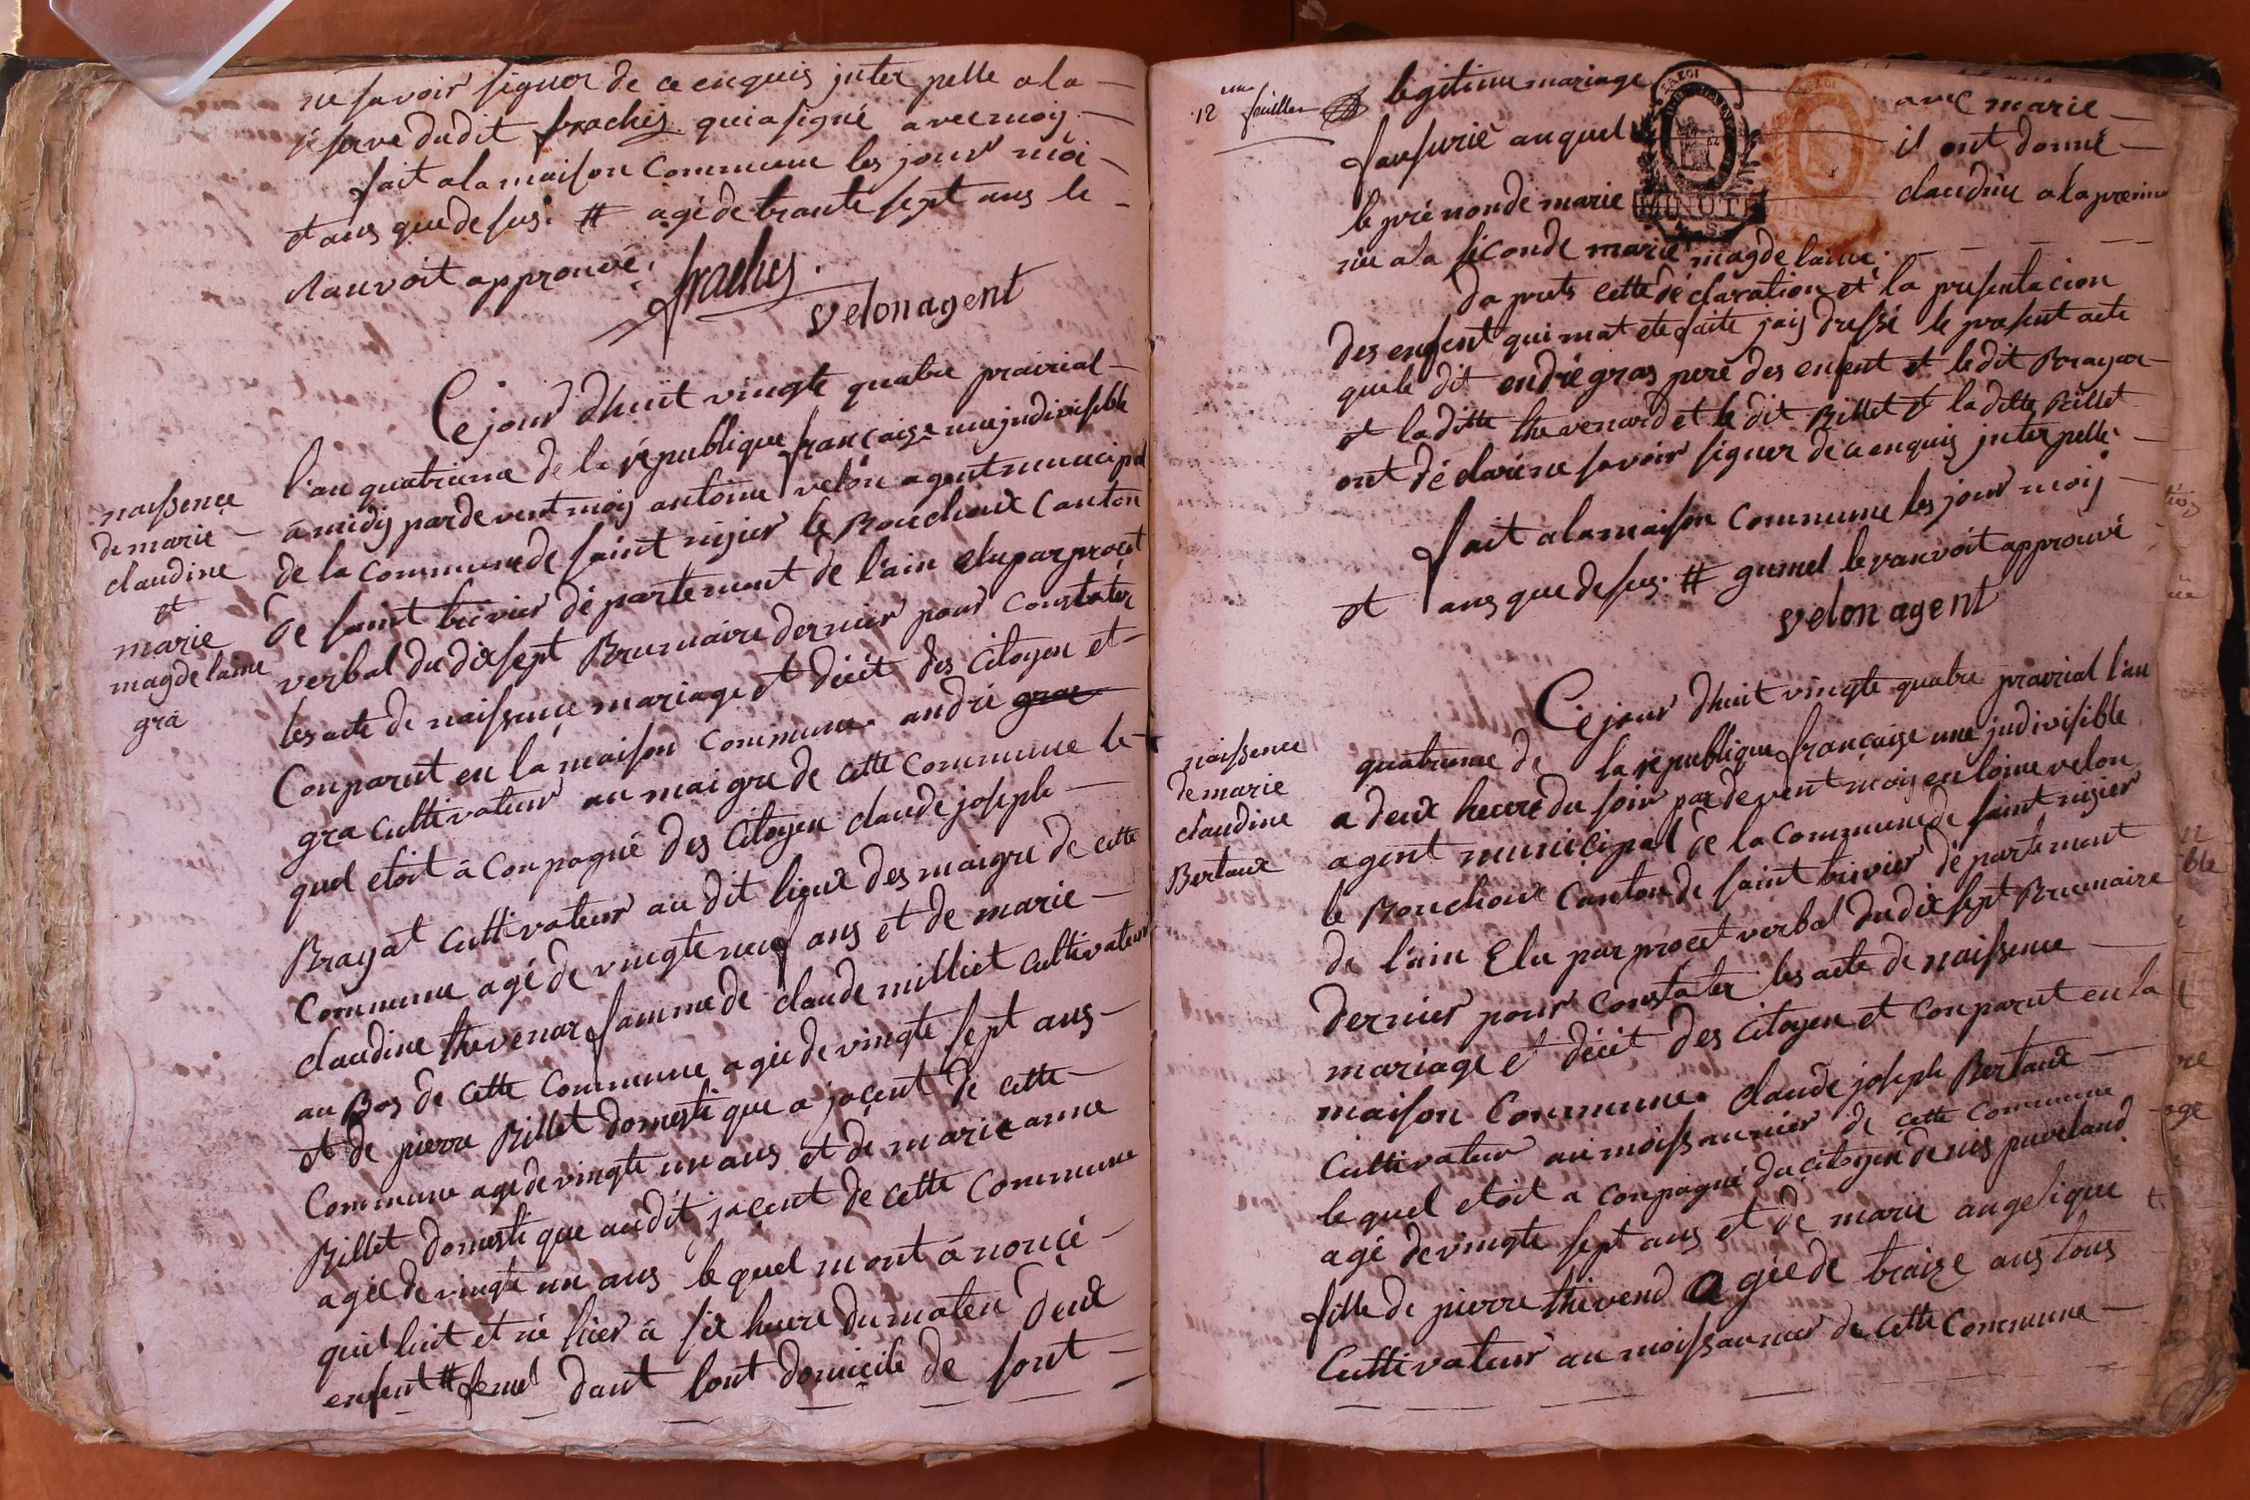 ne savoir signer de ce enquis jnter pelle a la
réserve dudit frachis qui a signé avec moy
fait a la maison Commune les jour moi
et ans que desus. # agé de trante sept ans le
dauvoit approuvé.
frachis.
velon agent
Ce jour dhuit vingte quatre prairial
l'an quatrieme de la république française une jndivisible
a midy pardevent moy antoine velon agent municipal
de la Commune de saint nizier le Bouchoux Canton
de saint trivier département de l'ain elu par procet
verbal du dix sept Brumaire dernier pour Constater
les acte de naissence mariage et décét des Citoyen et
Conparut en la maison Commune. andré gra
gra cultivateur au maigre de cette Commune le
quel etoit a Conpagné des Citoyen claude joseph
Brayat cultivateur au dit lieux des maigre de cette
Commune agé de vingte neuf ans et de marie
claudine thevenar famme de claude milliet cultivateur
au Bos de cette Commune agée de vingte sept ans
et de pierre Billet domestique a jacent de cette
Commune agé de vingte un ans et de marie anne
Billet domestique audit jacent de cette Commune
agée de vingte un ans le quel m'ont anoncé
qu'il luit et né hier a six heure du maten deux
enfent # femel dant sont domicile de sont
naissence
de marie
claudine
et
marie
magdelaine
gra
12 me feuillet
legitime mariage avec marie
sausurié auquel il ont donné
le prénon de marie claudine a la premie
rie a la seconde marie magdelaine.
da prets cette déclaration et la presentacion
des enfent qui mat ete faite jais dressé le present acte
que le dit endré gras pere des enfent et le dit Brayat
et la ditte thevenard et le dit Billet et la ditte Billet
ont déclaré ne savoir signer de ce enquis jnterpellé.
fait a la maison Commune les jour moy
et ans que desus. # gumel le vauvoit approuvé
velon agent
Ce jour dhuit vingte quatre prairial l'an
quatrieme de la république française une jndivisible
a deux heure du soir pardevent moy entoine velon
agent municipal de la Commune de saint nizier
le Bouchoux Canton de saint trivier département
de l'ain Elu par procet verbal du dix sept Brumaire
dernier pour Constater les acte de naissence
mariage et décét des Citoyen et Conparut en la
maison Commune. claude joseph Bertaux
Cultivateur au moissaunier de cette Commune
le quel etoit a conpagné du Citoyen denis puvéland
agé de vingte sept ans et de marie angelique
fille de pierre thevend agée de traize ans tous
Cultivateur au moissaunier de cette Commune
naissence
de marie
claudine
Bertaux
MINUTE